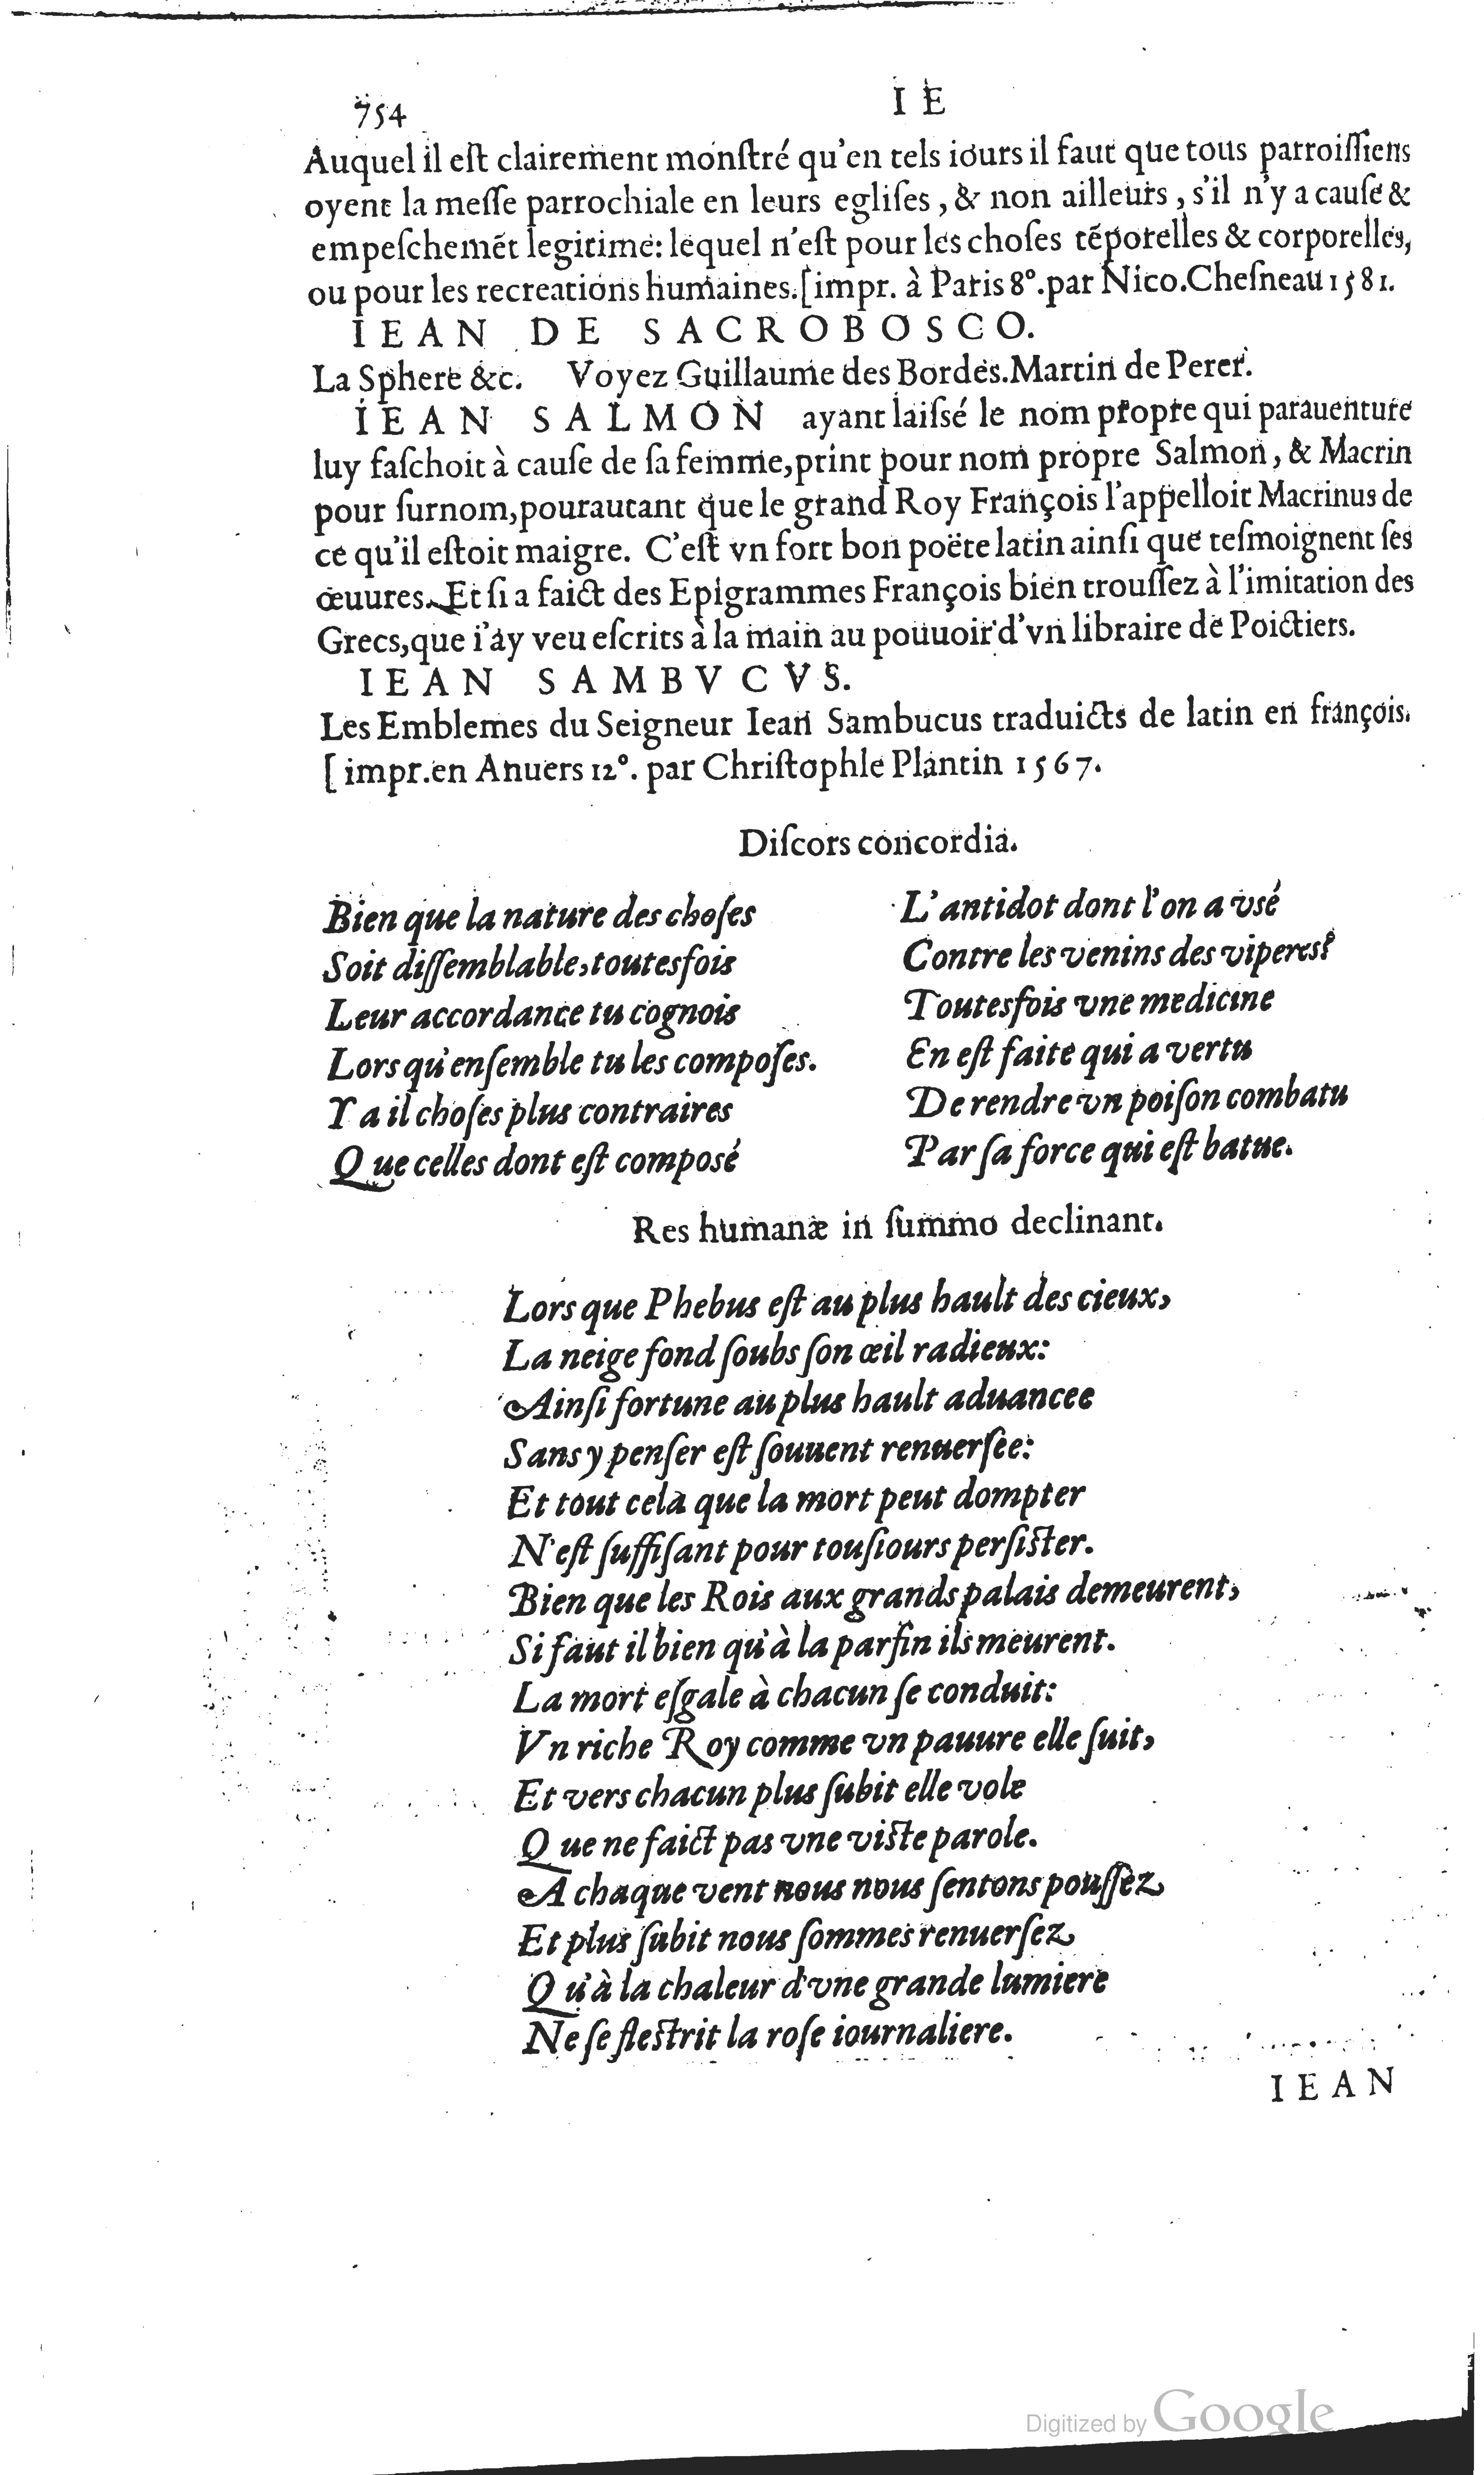 754
I E
Auquel il eſt clairement monſtré qu'en tels iours il faut que tous parroiſſiens
oyent la meſſe parrochiale en leurs egliſes, & non ailleurs, s'il n'y a cauſe &
empeſchemẽt legitime: lequel n'eſt pour les choſes tẽporelles & corporelles,
ou pour les recreations humaines. [impr. à Paris 8°. par Nico. Cheſneau 1581.
IEAN DE SACROBOSCO.
La Sphere &c. Voyez Guillaume des Bordes. Martin de Perer.
IEAN SALMON ayant laiſsé le nom propre qui parauenture
luy faſchoit à cauſe de ſa femme, print pour nom propre Salmon, & Macrin
pour ſurnom, pourautant que le grand Roy François l'appelloit Macrinus de
ce qu'il eſtoit maigre. C'eſt vn fort bon poëte latin ainſi que teſmoignent ſes
œuures. Et ſi a faict des Epigrammes François bien trouſſez à l'imitation des
Grecs, que i'ay veu eſcrits à la main au pouuoir d'vn libraire de Poictiers.
IEAN SAMBVCVS.
Les Emblemes du Seigneur Iean Sambucus traduicts de latin en françois.
[impr. en Anuers 12°. par Chriſtophle Plantin 1567.
Diſcors concordia.
Bien que la nature des choſes
Soit diſſemblable, toutesfois
Leur accordance tu cognois
Lors qu'enſemble tu les compoſes.
Y a il choſes plus contraires
Que celles dont eſt composé
L'antidot dont l'on a vsé
Contre les venins des viperes?
Toutesfois vne medicine
En eſt faite qui a vertu
De rendre vn poiſon combatu
Par ſa force qui eſt batue.
Res humanæ in ſummo declinant.
Lors que Phebus eſt au plus hault des cieux,
La neige fond ſoubs ſon œil radieux:
Ainſi fortune au plus hault aduancee
Sans y penſer eſt ſouuent renuerſee:
Et tout cela que la mort peut dompter
N'eſt ſuffiſant pour touſiours perſiſter.
Bien que les Rois aux grands palais demeurent,
Si faut il bien qu'à la parfin ils meurent.
La mort eſgale à chacun ſe conduit:
Vn riche Roy comme vn pauure elle ſuit,
Et vers chacun plus ſubit elle vole
Que ne faict pas vne viſte parole.
A chaque vent nous nous ſentons pouſſez,
Et plus ſubit nous ſommes renuerſez
Qu'à la chaleur d'vne grande lumiere
Ne ſe fleſtrit la roſe iournaliere.
IEAN
Digitized by Google